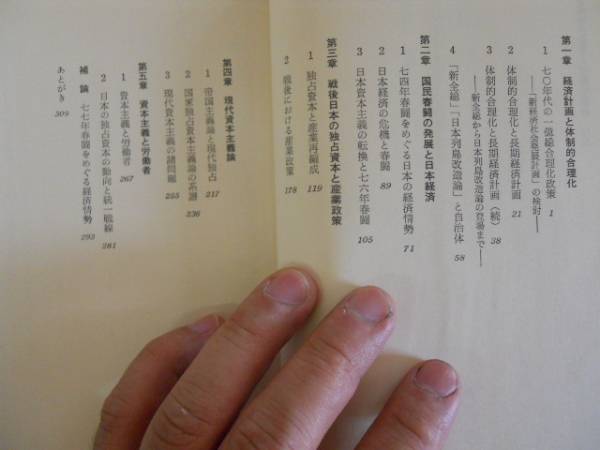 第一章 経済計画と体制的合理化
1 七〇年代の一億総合理化政策 1
――「新経済社会発展計画」の検討――
2 体制的合理化と長期経済計画 21
3 体制的合理化と長期経済計画（続） 38
――新全総から日本列島改造論の登場まで――
4 『新全総』『日本列島改造論』と自治体 58
第二章 国民春闘の発展と日本経済
1 七四年春闘をめぐる日本の経済情勢 71
2 日本経済の危機と春闘 89
3 日本資本主義の転換と七六年春闘 105
第三章 戦後日本の独占資本と産業政策
1 独占資本と産業再編成 119
2 戦後における産業政策 178
第四章 現代資本主義論
1 帝国主義論と現代独占 217
2 国家独占資本主義論の系譜 236
3 現代資本主義の諸問題 255
第五章 資本主義と労働者
1 資本主義と労働者 267
2 日本の独占資本の動向と統一戦線 281
補論 七七年春闘をめぐる経済情勢 293
あとがき 309